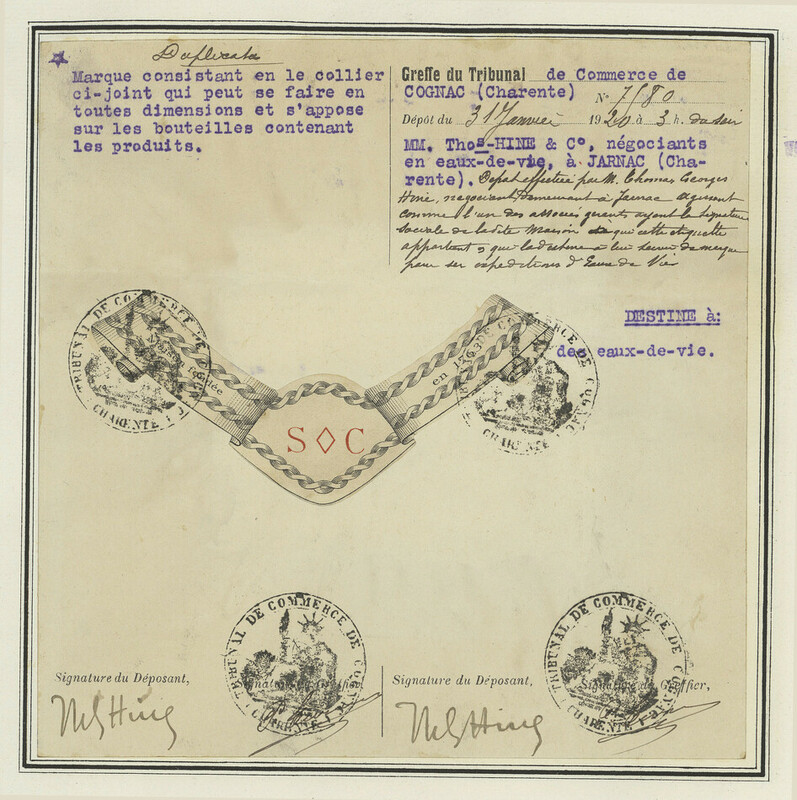 Duplicata
Marque consistant en le collier
ci-joint qui peut se faire en
toutes dimensions et s'appose
sur les bouteilles contenant
les produits.
Greffe du Tribunal de Commerce de
COGNAC (Charente) N° 7580
Dépôt du 31 Janvier 1920 à 3 h. du soir
MM. Thos-HINE & C°, négociants
en eaux-de-vie, à JARNAC (Cha-
rente). Dépot effectué par M. Thomas Georges
Hine, négociant demeurant à Jarnac agissant
comme l'un des associés gérants ayant la signature
sociale de la dite Maison qui cette étiquette
appartient & que la destine à lui servir de marque
pour ses expéditions d'Eaux de Vie
DESTINE à:
des eaux-de-vie.
TRIBUNAL DE COMMERCE DE
CHARENTE
Maison fondée
en 1763
S◊C
TRIBUNAL DE COMMERCE DE COGNAC
CHARENTE
TRIBUNAL DE COMMERCE DE
CHARENTE
TRIBUNAL DE COMMERCE DE
CHARENTE
Signature du Déposant,
Signature du Greffier,
Signature du Déposant,
Signature du Greffier,
Hine
Hine